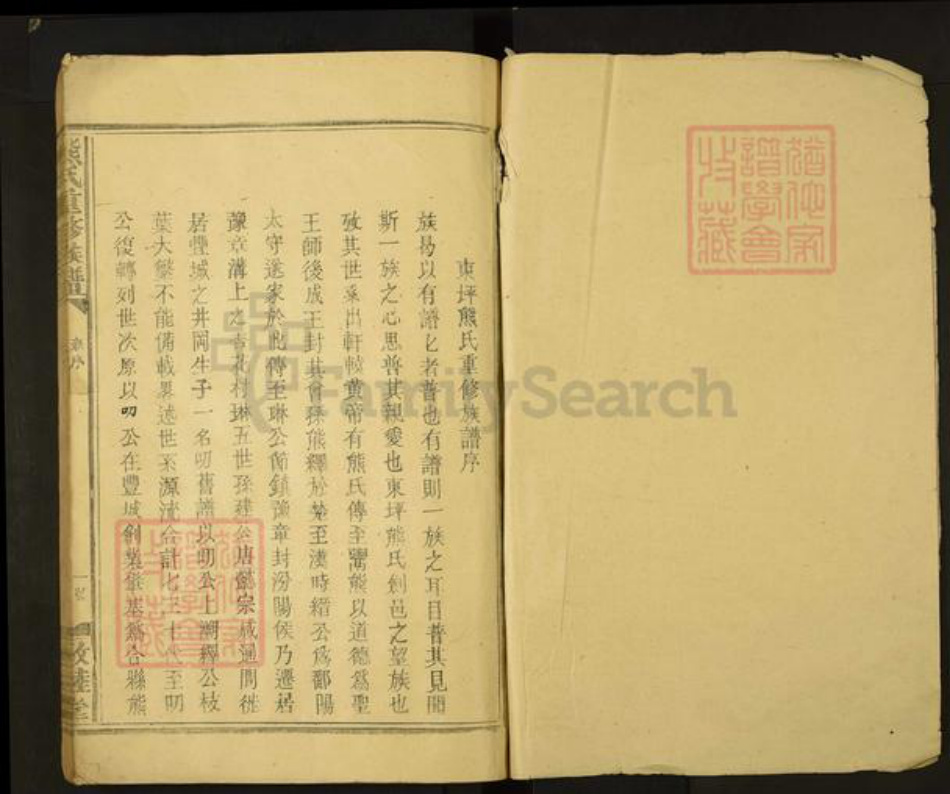 東坪熊氏重修族譜序
族曷以有譜匕者普也有譜則一族之耳目普其見聞
斯一族之心思普其親愛也東坪熊氏劍邑之望族也
攷其世系出軒轅黃帝有熊氏傳至鬻熊以道德爲聖
王師後成王封其曾孫熊繹於楚至漢時縉公爲鄱陽
太守遂家於此傳至琳公節鎮豫章封汾陽侯乃遷居
豫章溝上之杏花村琳五世孫建公唐懿宗咸通間徙
居豐城之井岡生子一名叨舊譜以叨公上溯繹公枝
葉大繁不能備載畧述世系源流合計七十代至叨
公復轉列世次原以叨公在豐城創業發基爲合縣熊
熊氏重修族譜
序
一
敦睦堂
猶他家譜學會收藏
猶他家譜學會收藏
FamilySearch